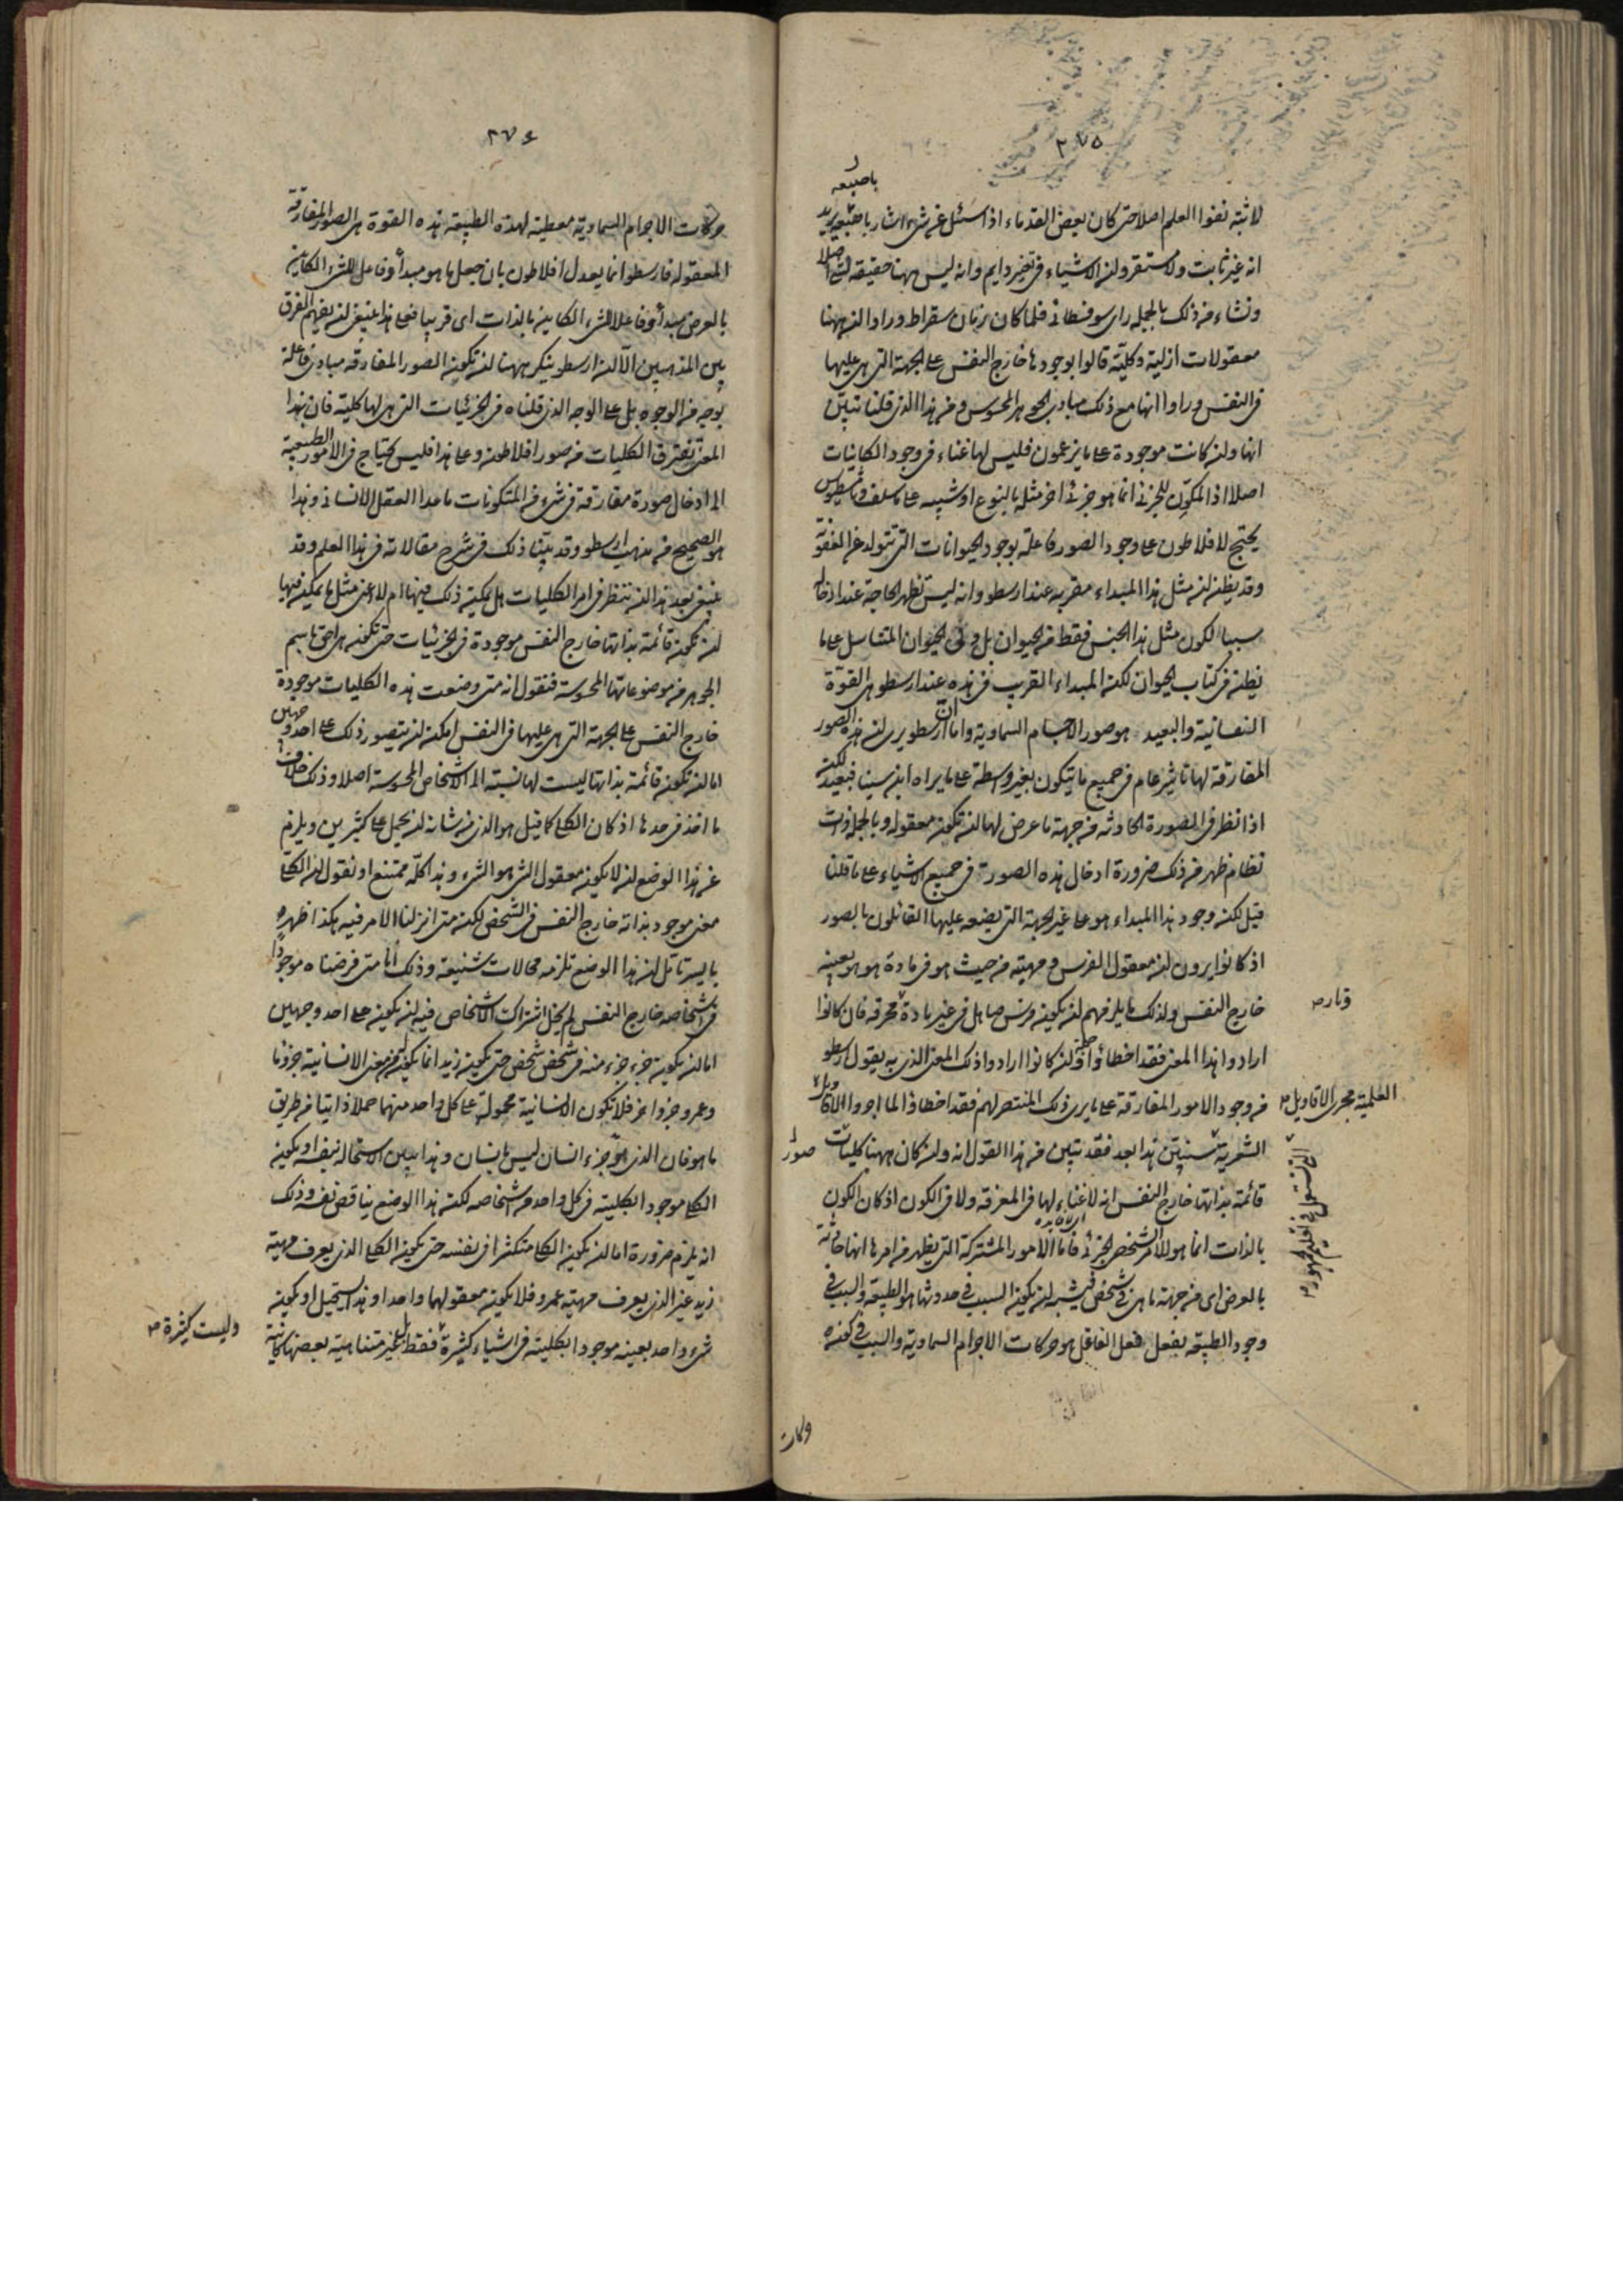 ٢٧٥
باصبعه
لاثبته نفوا العلم اصلا حتى كان بعض القدماء اذا سئل عن شىء اشار باصبعه يريد
انه غير ثابت ولا مستقر وان الاشياء فى تغير دايم وانه ليس ههنا حقيقة لشىء اصلا
ونشاء من ذلك بالجملة راى سوفسطائى فلما كان زمان سقراط وراوا ان ههنا
معقولات ازلية وكلية قالوا بوجودها خارج النفس على الجهة التى هى عليها
فى النفس وراوا انها مع ذلك مبادى الجوهر المحسوس ومن هذا الذى قلنا تبين
انها وان كانت موجودة على ما يزعمون فليس لها غناء فى وجود الكائنات
اصلا اذ المكون للجزئى انما هو جزئى اخر مثله بالنوع او شبيه على ما سلف وثامسطيوس
يحتج لافلاطون على وجود الصور فاعلة بوجود الحيوانات التى تتولد عن العفونة
وقد يظن ان مثل هذا المبداء مقر به عند ارسطو وانه ليس تظهر الحاجة عند ادخاله
سببا لكون مثل هذا الجنس فقط من الحيوان بل وفى الحيوان المتناسل على ما
يظن فى كتاب الحيوان لكن المبداء القريب فى هذه عند ارسطو هى القوة
النفسانية والبعيد هو صور الاجسام السماوية واما ان ارسطو يرى ان هذه الصور
المفارقة لها تاثير عام فى جميع ما يتكون بغير وسطة على ما يراه ابن سينا فبعيد لكن
اذا نظر فى الصورة الحادثة من جهة ما عرض لها ان تكون معقولة وبالجملة ذات
نظام ظهر من ذلك ضرورة ادخال هذه الصورة فى جميع الاشياء على ما قلنا
قبل لكن وجود هذا المبداء هو على غير الجهة التى يضعه عليها القائلون بالصور
اذ كانوا يرون ان معقول الفرس ومهيته من حيث هو فى مادة هو هو بعينه
خارج النفس ولذلك ما يلزمهم ان يكون فرس صاهل فى غير مادة محرقة فان كانوا
ونار ص
ارادوا هذا المعنى فقد اخطاؤا وان كانوا ارادوا ذلك المعنى الذى به يقول ارسطو
من وجود الامور المفارقة على ما يرى ذلك المنتصر لهم فقد اخطاؤا لما اجروا الاقاويل
العلمية مجرى الاقاويل
الشعرية سنبين هذا بعد فقد تبين من هذا القول انه وان كان ههنا كليات
صور
قائمة بذاتها خارج النفس انه لا غناء لها فى المعرفة ولا فى الكون اذ كان الكون
اى فائدة
بالذات انما هو للامر الشخص الجزئى فاما الامور المشتركة التى يظهر من امرها انها حادثة
بالعرض اى من جهة ما هى فى شخص فيشبه ان يكون السبب فى حدوثها هو الطبيعة والسبب فى
وجود الطبيعة يفعل فعل العاقل هو حركات الاجرام السماوية والسبب فى كون
حركات
٢٧٤
حركات الاجرام السماوية معطية لهذه الطبيعة هذه القوة هى الصور المفارقة
المعقولة فارسطو انما يعدل افلاطون بان جعل ما هو مبدأ وفاعل للشىء الكاين
بالعرض مبدأ وفاعلا للشىء الكاين بالذات اى قريبا فعلى هذا ينبغى ان يفهم الفرق
بين المذهبين الا ان ارسطو ينكر ههنا ان تكون الصور المفارقة مبادى فاعلة
بوجه من الوجوه بل على الوجه الذى قلناه فى الجزئيات التى هى لها كلية فان بهذا
المعنى تفترق الكليات من صور افلاطون وعلى هذا فليس يحتاج فى الامور الطبيعية
الى ادخال صورة مفارقة فى شىء من المتكونات ما عدا العقل الانسانى وهذا
هو الصحيح من مذهب ارسطو وقد بينا ذلك فى شرح مقالاته فى هذا العلم وقد
ينبغى بعد هذا ان ننظر فى امر الكليات هل يمكن ذلك فيها ام لا اعنى مثل ما يمكن فيها
ان تكون قائمة بذاتها خارج النفس موجودة فى الجزئيات حتى تكون هى احق باسم
الجوهر من موضوعاتها المحسوسة فنقول انه متى وضعت هذه الكليات موجودة
خارج النفس على الجهة التى هى عليها فى النفس امكن ان يتصور ذلك على احد وجهين
اما ان تكون قائمة بذاتها ليست لها نسبة الى الاشخاص المحسوسة اصلا وذلك خلاف
ما اخذ فى حدها اذ كان الكلى كما قيل هو الذى من شانه ان يحمل على كثيرين ويلزم
عن هذا الوضع ان لا يكون معقول الشىء هو الشىء وهذا كله ممتنع او نقول ان الكلى
معنى موجود بذاته خارج النفس فى الشخص لكن متى انزلنا الامر فيه هكذا ظهر
بايسر تامل ان هذا الوضع تلزمه محالات شنيعة وذلك انا متى فرضناه موجودا
فى اشخاصه خارج النفس لم يخل اشتراك الاشخاص فيه ان يكون على احد وجهين
اما ان يكون جزء جزء منه فى شخص شخص حتى يكون زيد انما يكون له من معنى الانسانية جزء ما
وعمرو جزء اخر فلا تكون الانسانية محمولة على كل واحد منهما حملا ذاتيا من طريق
ما هو فان الذى هو جزء انسان ليس بانسان وهذا بين الاستحالة بنفسه او يكون
الكلى موجودا بكليته فى كل واحد من اشخاصه لكن هذا الوضع يناقض نفسه وذلك
انه يلزم ضرورة اما ان يكون الكلى متكثرا فى نفسه حتى يكون الكلى الذى يعرف مهية
زيد غير الذى يعرف مهية عمرو فلا يكون معقولهما واحدا وهذا مستحيل او يكون
شىء واحد بعينه موجودا بكليته فى اشياء كثيرة فقط بل غير متناهية بعضها كائنة
وليست كثيرة ص